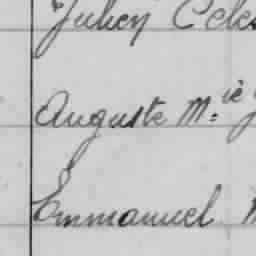 Julien Céles
Auguste M.ie
Emmanuel